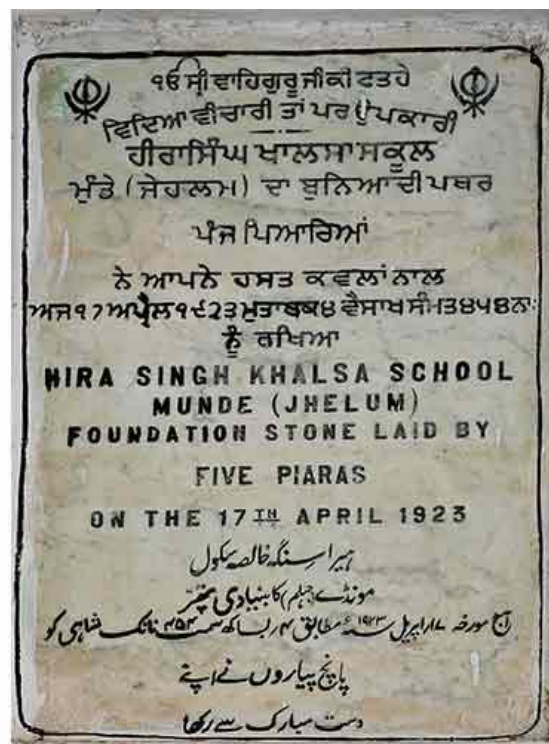 ੴ ਸ੍ਰੀ ਵਾਹਿਗੁਰੂ ਜੀਕੀ ਫਤਹੇ
ਵਿਦਿਆ ਵੀਚਾਰੀ ਤਾਂ ਪਰਉਪਕਾਰੀ
ਹੀਰਾ ਸਿੰਘ ਖਾਲਸਾ ਸਕੂਲ
ਮੁੰਡੇ (ਜੇਹਲਮ) ਦਾ ਬੁਨਿਆਦੀ ਪਥਰ
ਪੰਜ ਪਿਆਰਿਆਂ
ਨੇ ਆਪਨੇ ਹਸਤ ਕਵਲਾਂ ਨਾਲ
ਅਜ ੧੭ ਅਪ੍ਰੈਲ ੧੯੨੩ ਮੁਤਾਬਕ ੪ ਵੈਸਾਖ ਸੰਮਤ ੪੫੪ ਨਾ:
ਨੂੰ ਰਖਿਆ
HIRA SINGH KHALSA SCHOOL
MUNDE (JHELUM)
FOUNDATION STONE LAID BY
FIVE PIARAS
ON THE 17TH APRIL 1923
ہیرا سنگھ خالصہ سکول
مونڈے (جہلم) کا بنیادی پتھر
آج مورخہ ۱۷ اپریل سنہ ۱۹۲۳ء مطابق ۴ بساکھ سمت ۴۵۴ نانک شاہی کو
پانچ پیاروں نے اپنے
دست مبارک سے رکھا